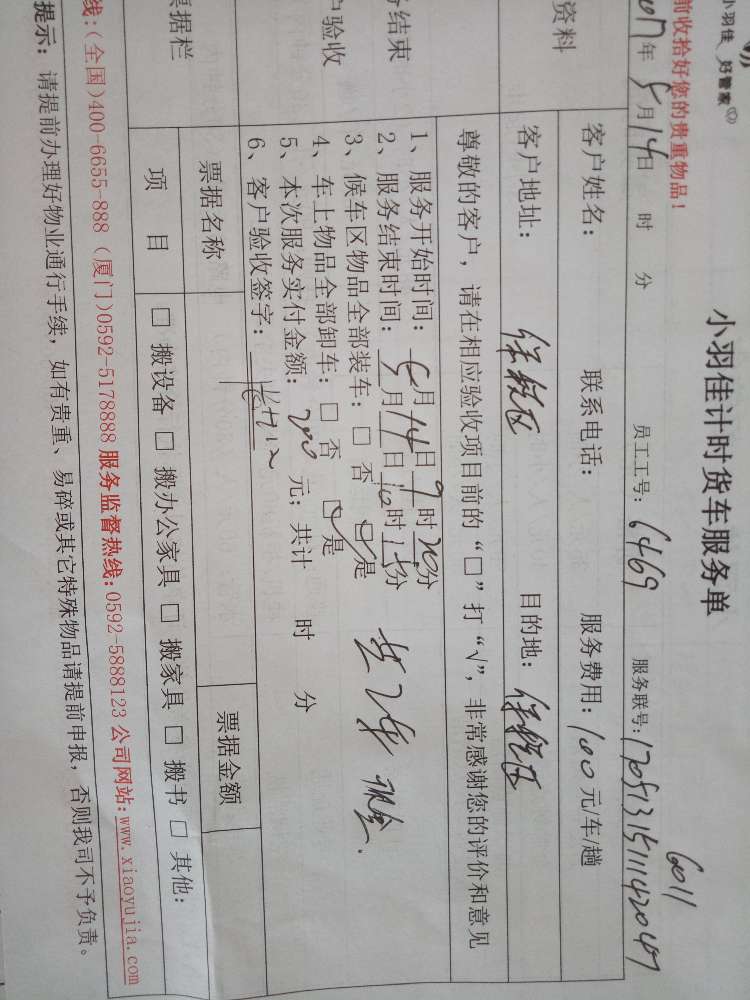 小羽佳
好管家
小羽佳计时货车服务单
前收拾好您的贵重物品！
6011
2017年5月14日 时 分 员工工号：6469 服务联号：170513151114204
资料
客户姓名： 联系电话： 服务费用：100元/车/趟
客户地址：保税区 目的地：保税区
务结束
户验收
尊敬的客户，请在相应验收项目前的“□”打“√”，非常感谢您的评价和意见
1、服务开始时间：5月14日9时20分
2、服务结束时间：5月14日10时15分
3、候车区物品全部装车：□ 否 □是
4、车上物品全部卸车：□ 否 □是
5、本次服务实付金额：200 元；共计 时 分
6、客户验收签字：
票据栏
票据名称 票据金额
项 目 □ 搬设备 □ 搬办公家具 □ 搬家具 □ 搬书 □ 其他：
线：(全国)400-6655-888 (厦门)0592-5178888 服务监督热线：0592-5888123 公司网站：www.xiaoyujia.com
提示：请提前办理好物业通行手续，如有贵重、易碎或其它特殊物品请提前申报，否则我司不予负责。